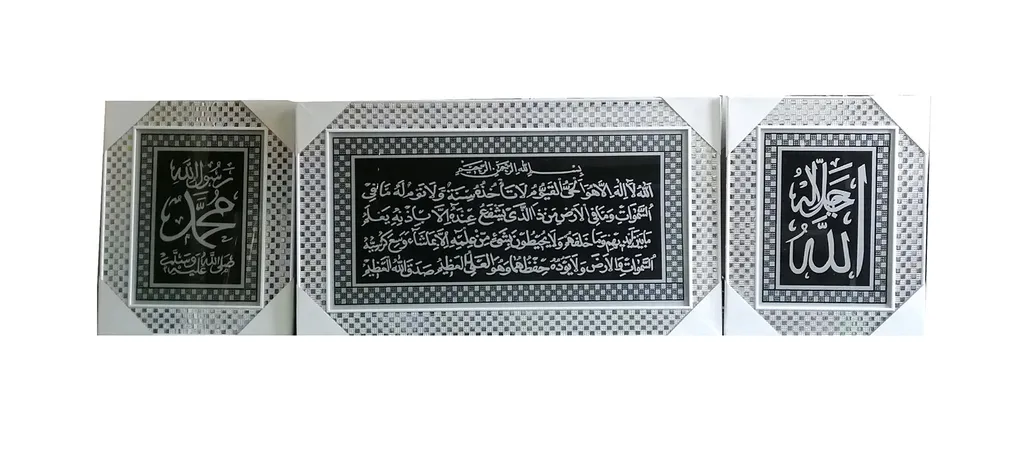 الله
جل جلاله
بسم الله الرحمن الرحيم
الله لا إله إلا هو الحي القيوم لا تأخذه سنة ولا نوم له ما في
السموات وما في الأرض من ذا الذي يشفع عنده إلا بإذنه يعلم
ما بين أيديهم وما خلفهم ولا يحيطون بشيء من علمه إلا بما شاء وسع كرسيه
السموات والأرض ولا يؤده حفظهما وهو العلي العظيم صدق الله العظيم
رسول الله
محمد
صلى الله عليه وسلم